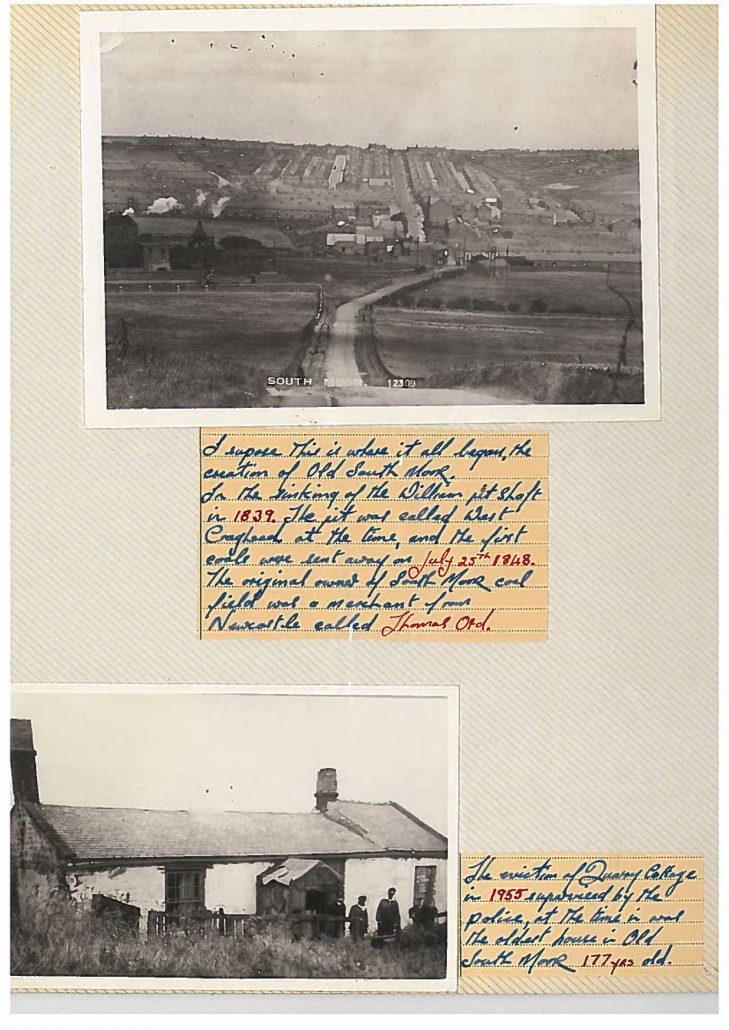 SOUTH MOOR 12309
I supose this is where it all began, the
creation of Old South Moor.
In the sinking of the William pit shaft
in 1839. The pit was called West
Craghead at the time, and the first
coals were sent away on July 25th 1848.
The original owner of South Moor coal
field was a merchant from
Newcastle called Thomas Ord.
The eviction of Quarry Cottage
in 1955 supervised by the
police, at the time in was
the oldest house in Old
South Moor 177 yrs old.